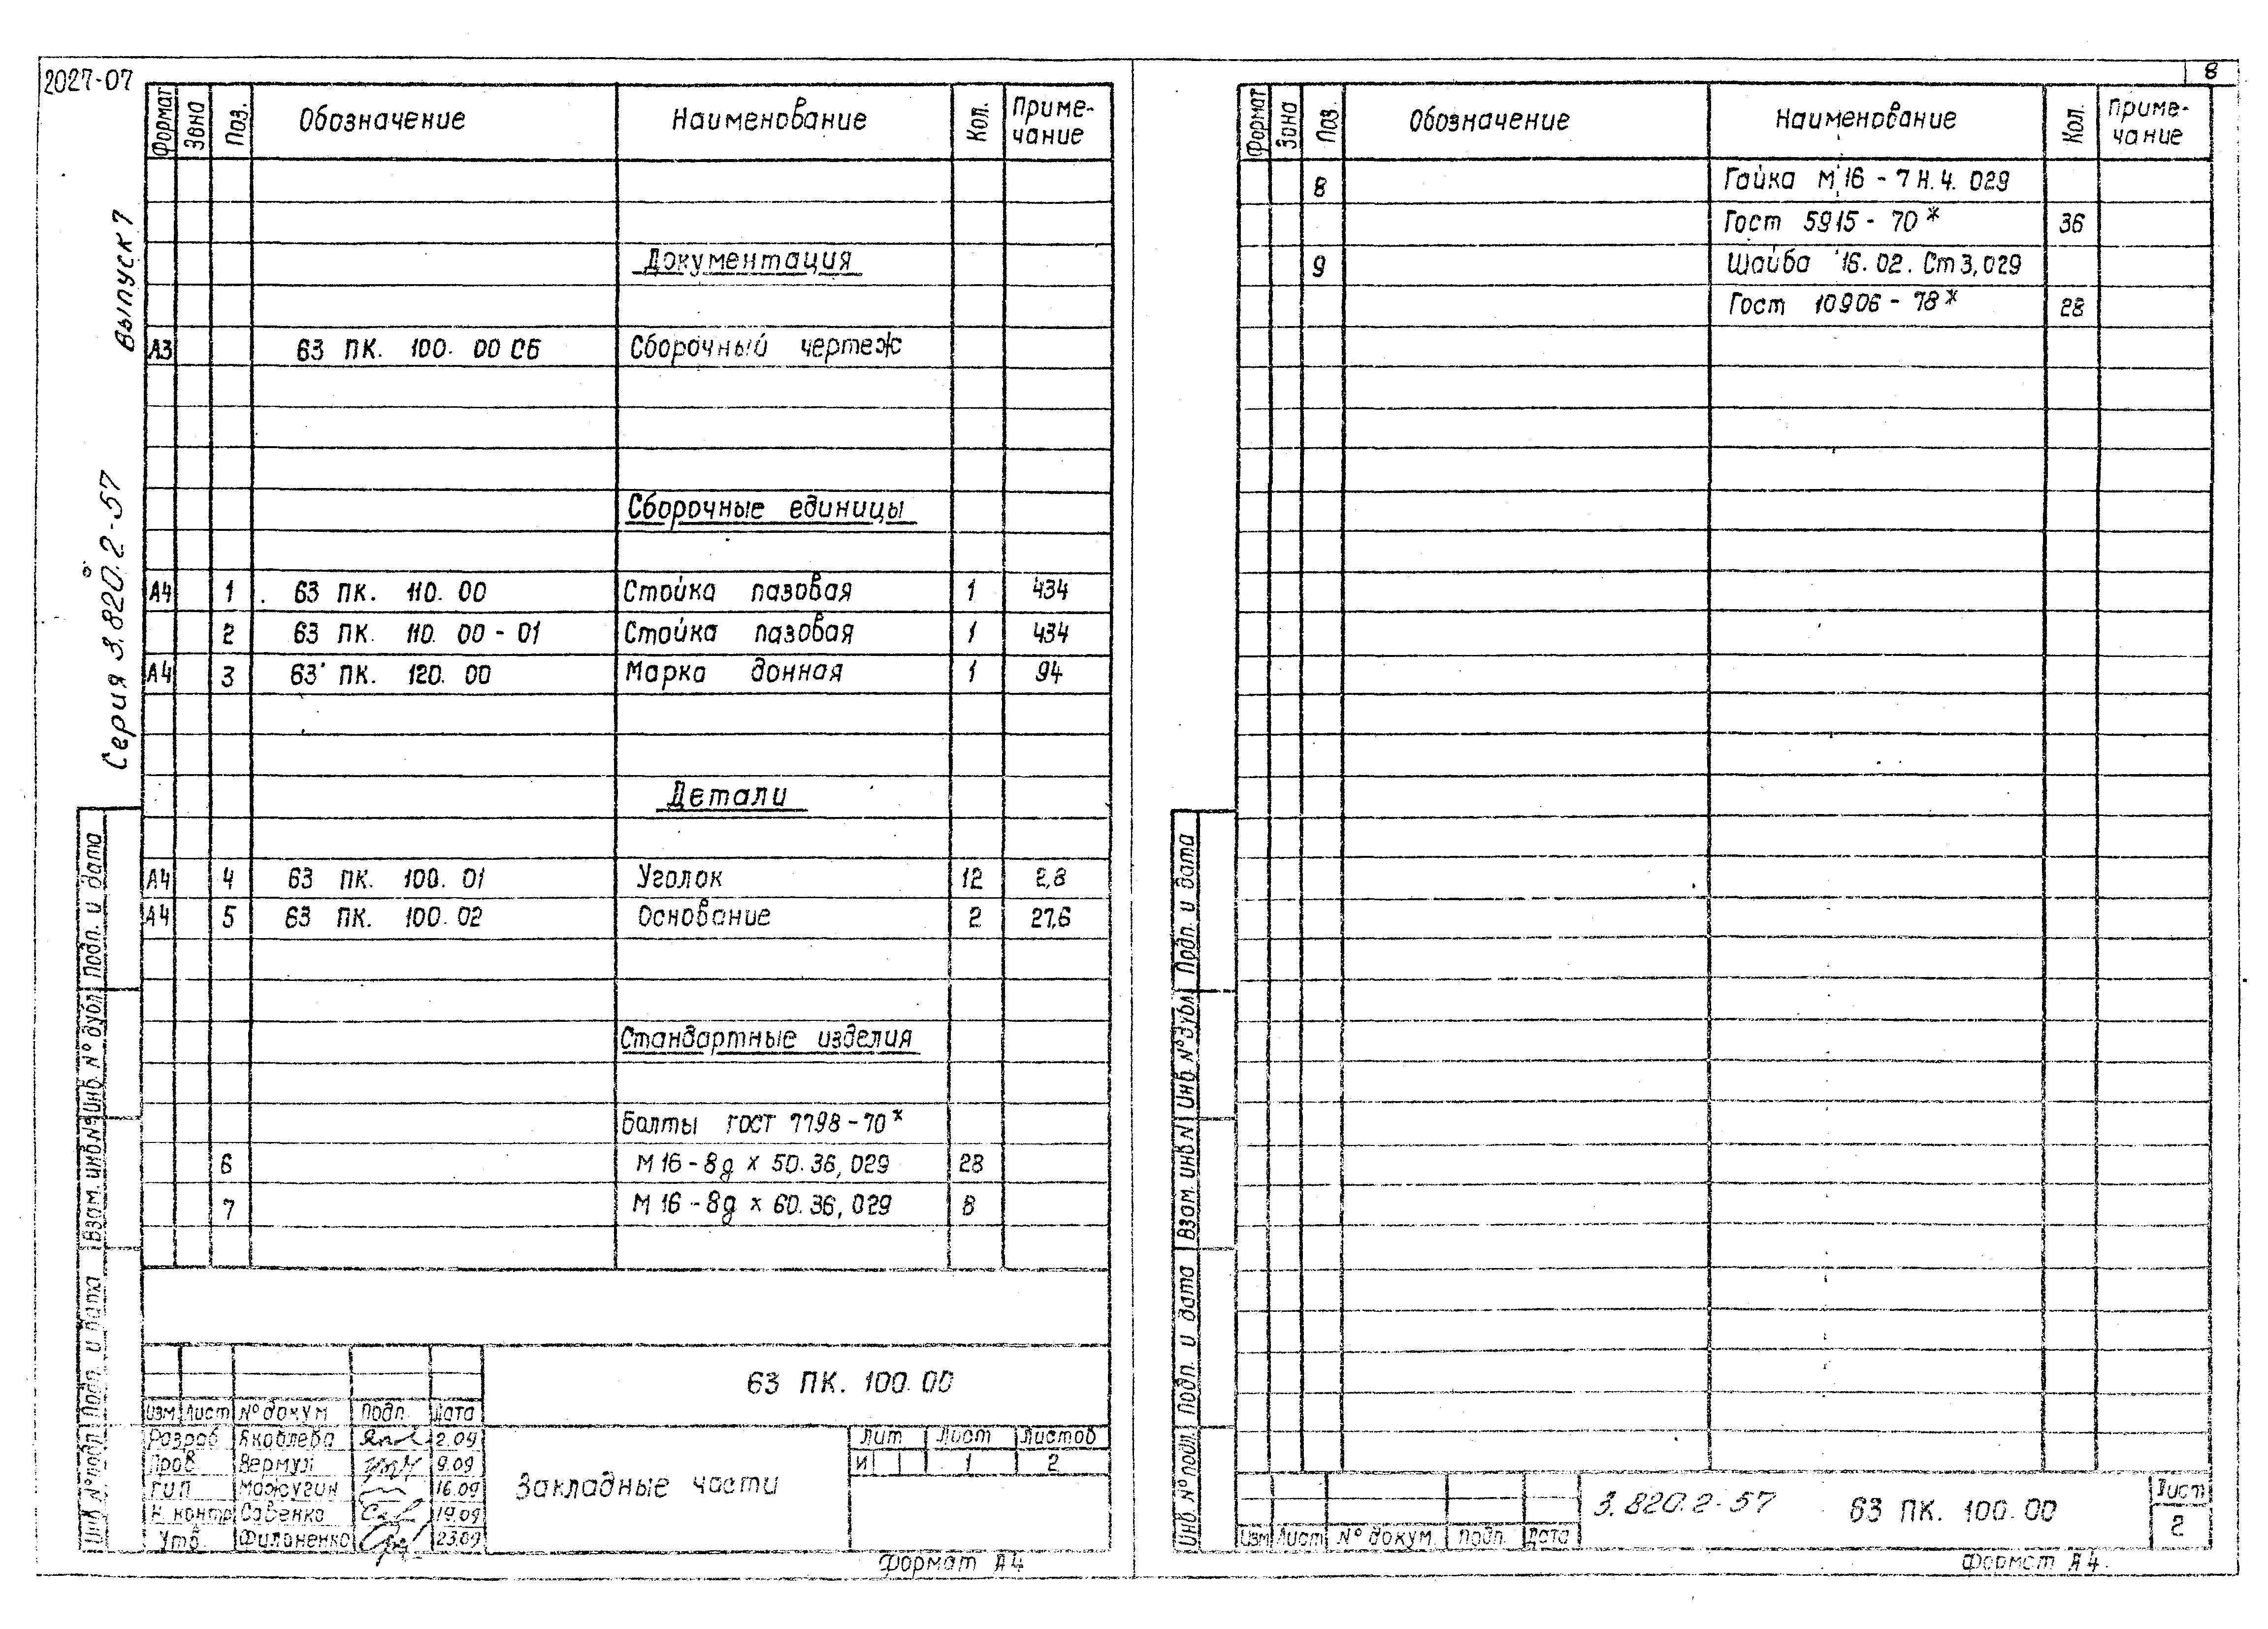 2027-07
Серия 3.820.2-57 выпуск 7
Формат Зона Поз. Обозначение Наименование Кол. Приме-
чание
Документация
А3 63 ПК. 100. 00 СБ Сборочный чертеж
Сборочные единицы
А4 1 63 ПК. 110. 00 Стойка пазовая 1 434
2 63 ПК. 110. 00 - 01 Стойка пазовая 1 434
А4 3 63 ПК. 120. 00 Марка донная 1 94
Детали
А4 4 63 ПК. 100. 01 Уголок 12 2,8
А4 5 63 ПК. 100. 02 Основание 2 27,6
Стандартные изделия
Болты ГОСТ 7798-70*
6 М16-8g х 50.36, 029 28
7 М16-8g х 60.36, 029 8
Инв. № подл. Подп. и дата Взам. инв № Инв. № дубл Подп. и дата
63 ПК. 100. 00
Изм Лист № докум Подп. Дата
Разраб Яковлева 2.09
Пров 9.09
ГИП Мажугин 16.09
Н. контр Савенко 19.09
Утв. Филоненко 23.09
Закладные части
Лит Лист Листов
И 1 2
Формат А4
8
Формат Зона Поз. Обозначение Наименование Кол. Приме-
чание
8 Гайка М16-7Н.4. 029
Гост 5915-70* 36
9 Шайба 16. 02. Ст3, 029
Гост 10906-78* 28
Инв. № подл. Подп. и дата Взам. инв № Инв. № дубл Подп. и дата
Изм Лист № докум. Подп. Дата
3.820.2-57 63 ПК. 100. 00
Лист
2
Формат А4